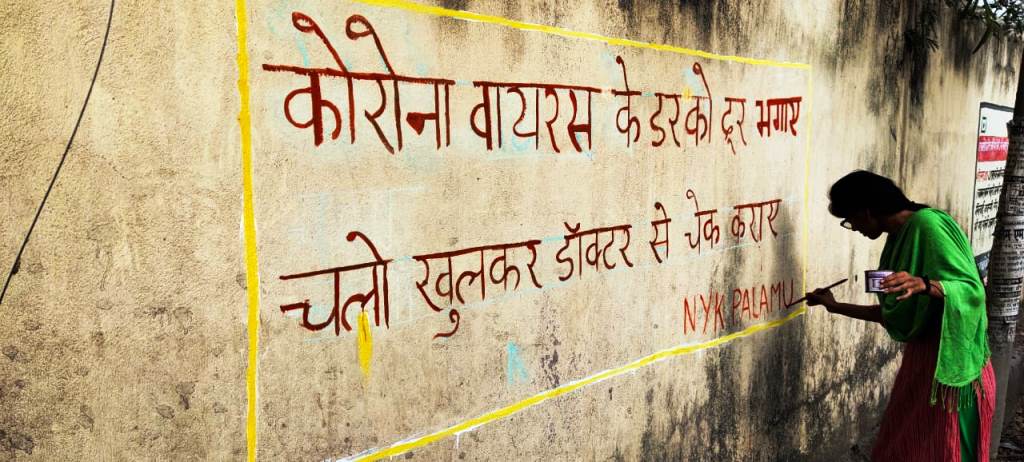 कोरोना वायरस के डर को दूर भगाए
चलो खुलकर डॉक्टर से चेक कराए
NYK PALAMU